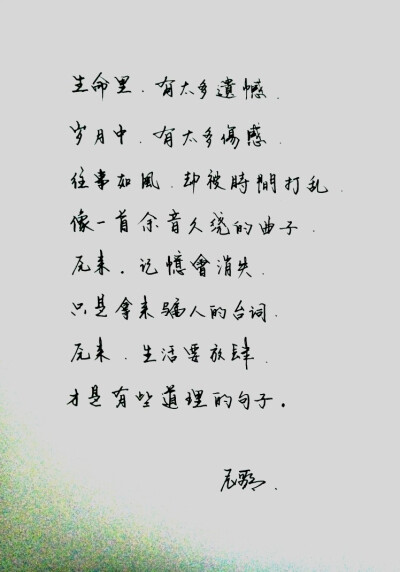 生命里.有太多遺憾.
岁月中.有太多傷感.
往事如風.却被時間打乱.
像一首余音久绕的曲子.
原来.记憶會消失.
只是拿来骗人的台词.
原来.生活要放肆.
才是有些道理的句子。